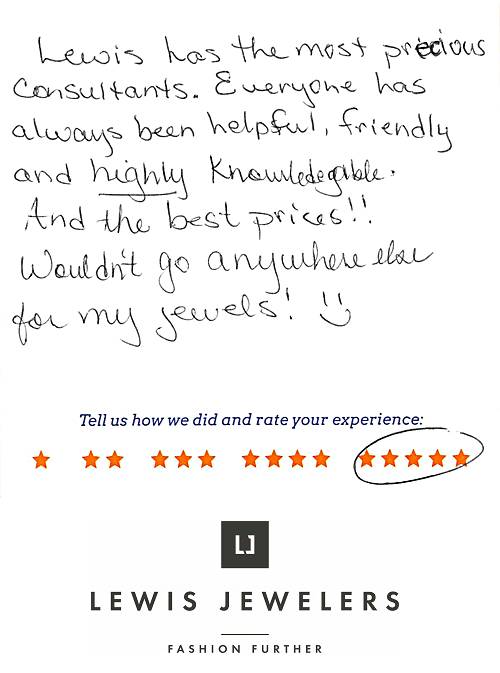 Lewis has the most precious
Consultants. Everyone has
always been helpful, friendly
and highly Knowledegable.
And the best prices!!
Wouldn't go anywhere else
for my jewels! :)
Tell us how we did and rate your experience:
LJ
LEWIS JEWELERS
FASHION FURTHER